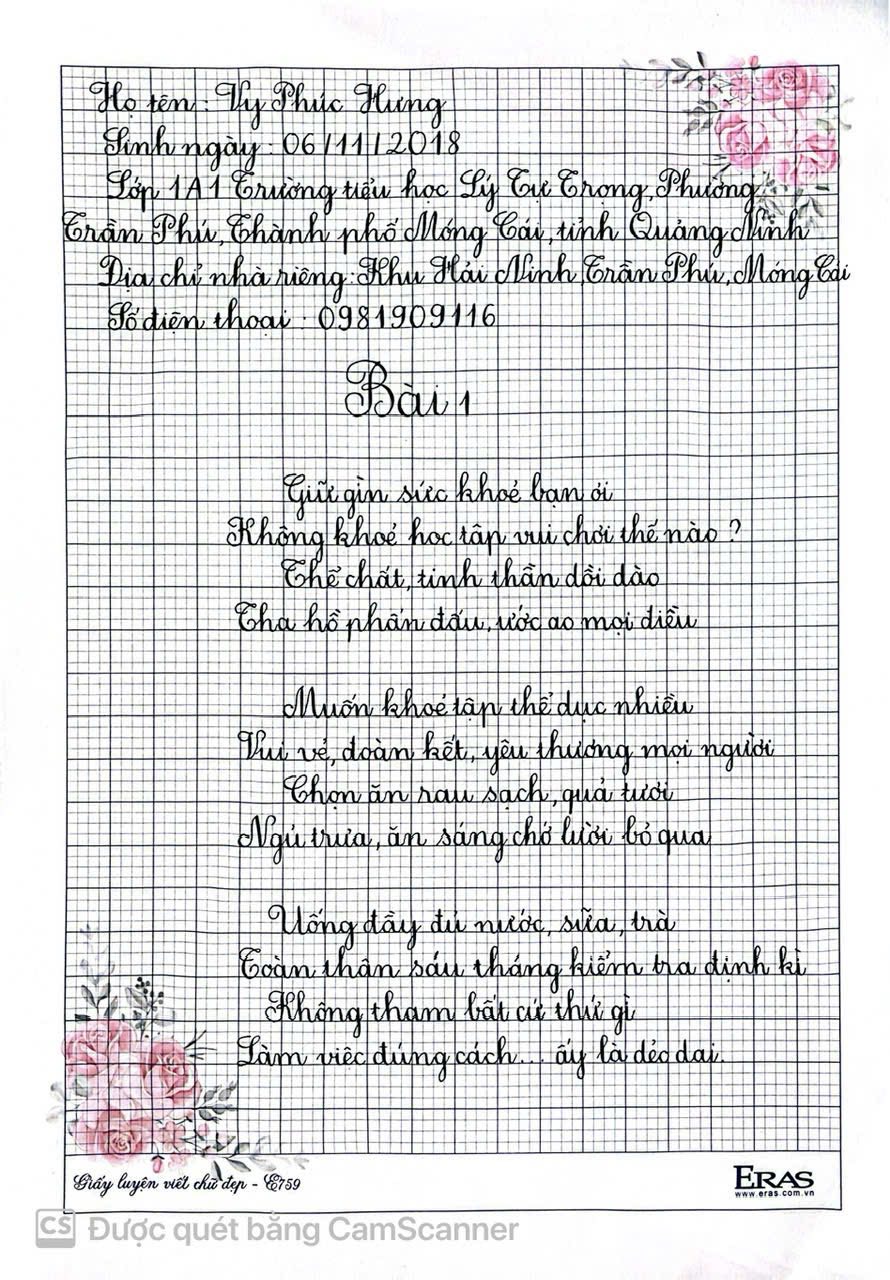 Họ tên : Vy Phúc Hưng
Sinh ngày : 06/11/2018
Lớp 1A1 Trường tiểu học Lý Tự Trọng, Phường
Trần Phú, Thành phố Móng Cái, tỉnh Quảng Ninh
Địa chỉ nhà riêng: Khu Hải Ninh, Trần Phú, Móng Cái
Số điện thoại : 0981909116
Bài 1
Giữ gìn sức khoẻ bạn ơi
Không khoẻ học tập vui chơi thế nào ?
Thể chất, tinh thần dồi dào
Tha hồ phấn đấu, ước ao mọi điều
Muốn khoẻ tập thể dục nhiều
Vui vẻ, đoàn kết, yêu thương mọi người
Chọn ăn rau sạch, quả tươi
Ngủ trưa, ăn sáng chớ lười bỏ qua
Uống đầy đủ nước, sữa, trà
Toàn thân sáu tháng kiểm tra định kì
Không tham bất cứ thứ gì
Làm việc đúng cách... ấy là dẻo dai.
Giấy luyện viết chữ đẹp - E759
ERAS
www.eras.com.vn
CS Được quét bằng CamScanner